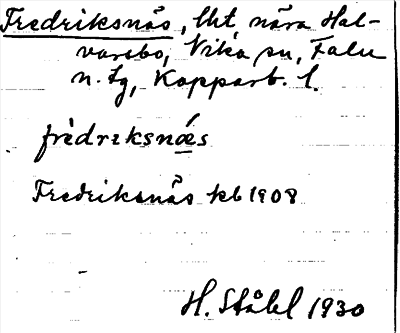 Fredriksnäs, lht nära Hal-
varsbo, Vika sn, Falu
n. tg, Kopparb. l.
frèdrɩksnǽs
Fredriksnäs kb 1908
H. Ståhl 1930